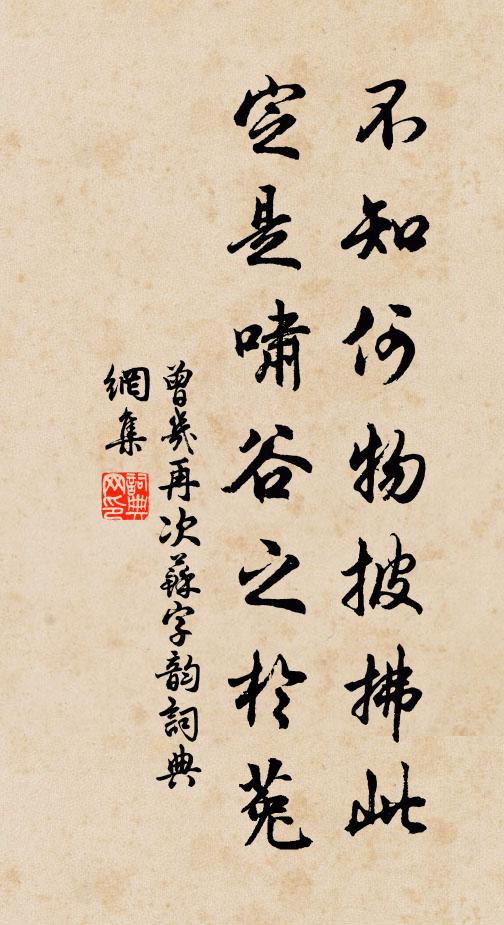 不知何物披拂此
定是啸谷之於菟
曾幾再次蘇字韵詞典
網集
詞典
网印